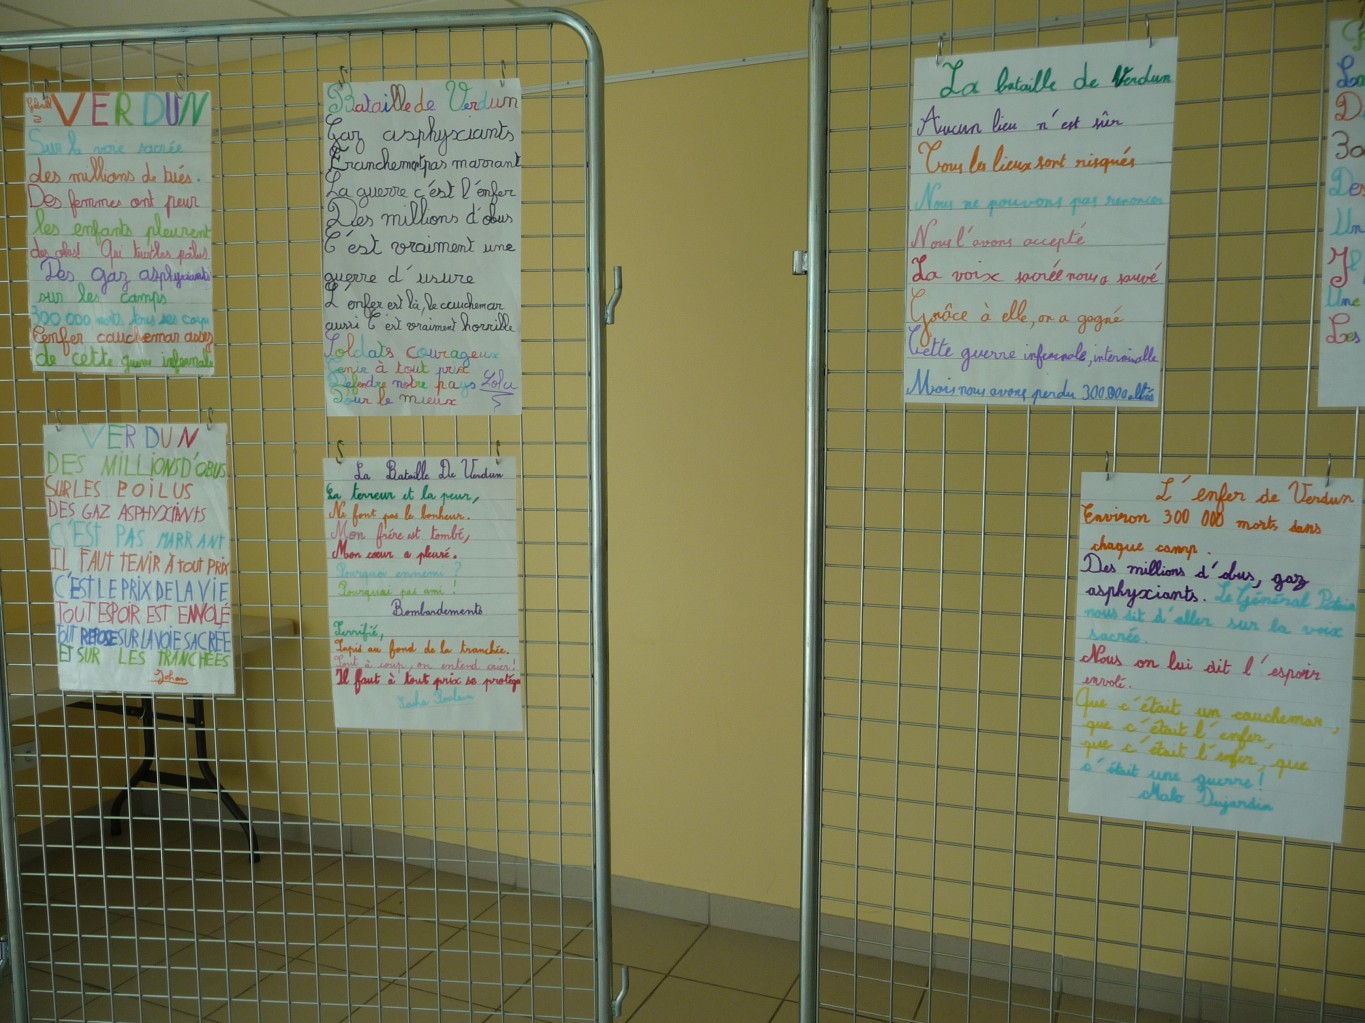 VERDUN
Sur la voie sacrée
des millions de tués.
Des femmes ont peur
les enfants pleurent
des obus! Qui tue les poilus
Des gaz asphyxiants
sur les camps
300 000 morts tous ses corps
L'enfer cauchemar assez
de cette guerre infernale
VERDUN
DES MILLIONS D'OBUS
SUR LES POILUS
DES GAZ ASPHYXIANTS
C'EST PAS MARRANT
IL FAUT TENIR À TOUT PRIX
C'EST LE PRIX DE LA VIE
TOUT ESPOIR EST ENVOLÉ
TOUT REPOSE SUR LA VOIE SACRÉE
ET SUR LES TRANCHÉES
Johan
Bataille de Verdun
Gaz asphyxiants
Franchement pas marrant
La guerre c'est l'enfer
Des millions d'obus
C'est vraiment une
guerre d'usure
L'enfer est là, le cauchemar
aussi C'est vraiment horrible
Soldats courageux
Tenir à tout prix
Défendre notre pays Lola
Pour le mieux
La Bataille De Verdun
La terreur et la peur,
Ne font pas le bonheur.
Mon frère est tombé,
Mon cœur a pleuré.
Pourquoi ennemi ?
Pourquoi pas ami !
Bombardements
Terrifié,
Tapis au fond de la tranchée.
Tout à coup, on entend crier!
Il faut à tout prix se protégé
La bataille de Verdun
Aucun lieu n'est sûr
Tous les lieux sont risqués
Nous ne pouvons pas renoncer
Nous l'avons accepté
La voix sacrée nous a sauvé
Grâce à elle, on a gagné
Cette guerre infernale, interminable
Mais nous avons perdu 300 000 alliés
L'enfer de Verdun
Environ 300 000 morts dans
chaque camp.
Des millions d'obus, gaz
asphyxiants. Le Général Pétain
nous dit d'aller sur la voix
sacrée.
Nous on lui dit l'espoir
envolé.
Que c'était un cauchemar,
que c'était l'enfer,
que c'était l'enfer, que
c'était une guerre!
Malo Dujardin
Un
Une